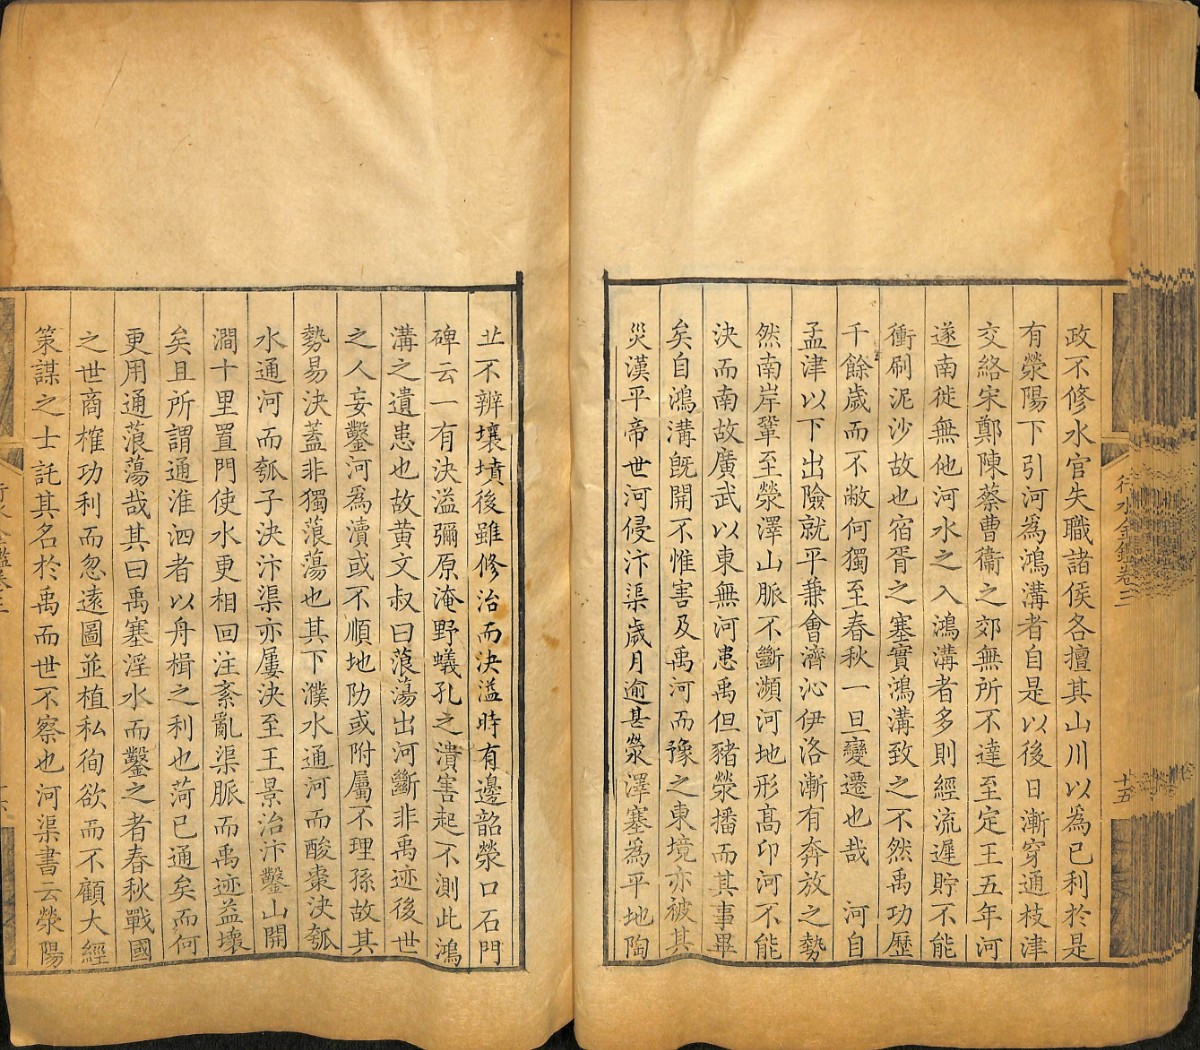 行水金鑑卷三
十五
政不修水官失職諸侯各擅其山川以為己利於是
有滎陽下引河為鴻溝者自是以後日漸穿通枝津
交絡宋鄭陳蔡曹衞之郊無所不達至定王五年河
遂南徙無他河水之入鴻溝者多則經流遲貯不能
衝刷泥沙故也宿胥之塞實鴻溝致之不然禹功歷
千餘歲而不敝何獨至春秋一旦變遷也哉　河自
孟津以下出險就平兼會濟沁伊洛漸有奔放之勢
然南岸鞏至滎澤山脈不斷瀕河地形髙卬河不能
決而南故廣武以東無河患禹但豬滎播而其事畢
矣自鴻溝旣開不惟害及禹河而豫之東境亦被其
災漢平帝世河侵汴渠歲月逾甚滎澤塞為平地陶
丠不辨壤墳後雖修治而決溢時有邊韶滎口石門
碑云一有決溢彌原淹野蟻孔之潰害起不測此鴻
溝之遺患也故黄文叔曰蒗蕩出河斷非禹迹後世
之人妄鑿河為瀆或不順地阞或附屬不理孫故其
勢易決蓋非獨蒗蕩也其下濮水通河而酸棗決瓠
水通河而瓠子決汴渠亦屢決至王景治汴鑿山開
澗十里置門使水更相回注紊亂渠脈而禹迹益壞
矣且所謂通淮泗者以舟楫之利也菏已通矣而何
更用通蒗蕩哉其曰禹塞淫水而鑿之者春秋戰國
之世商榷功利而忽遠圖並植私徇欲而不顧大經
策謀之士託其名於禹而世不察也河渠書云滎陽
行水金鑑卷三